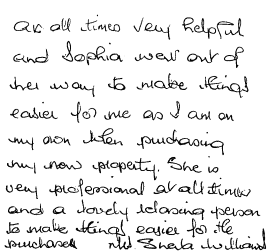 at all times very helpful
and Sophia went out of
her way to make things
easier for me as I am on
my own when purchasing
my new property. She is
very professional at all times
and a lovely relaxing person
to make things easier for the
purchaser Mrs Sheila Williams